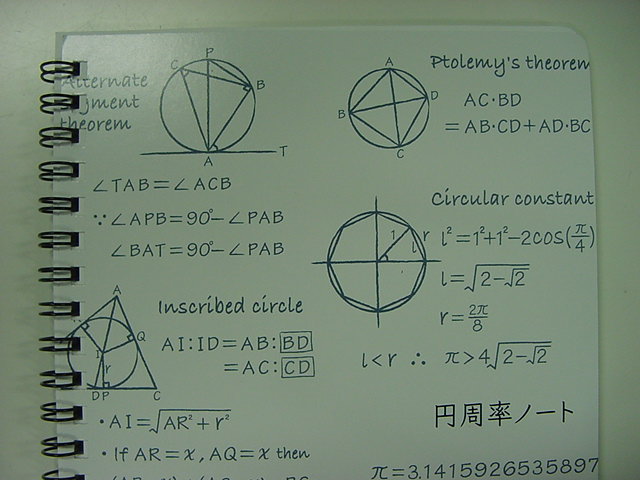 Alternate
segment
theorem
P
C
B
A
T
∠TAB=∠ACB
∵∠APB=90°-∠PAB
∠BAT=90°-∠PAB
Ptolemy's theorem
A
B
D
C
AC·BD
=AB·CD+AD·BC
Circular constant
1
r
l
l²=1²+1²-2cos(π/4)
l=√(2-√2)
r=2π/8
l<r ∴ π>4√(2-√2)
Inscribed circle
A
Q
I
r
D P C
AI:ID=AB:BD
=AC:CD
・AI=√(AR²+r²)
・If AR=x, AQ=x then
円周率ノート
π=3.1415926535897